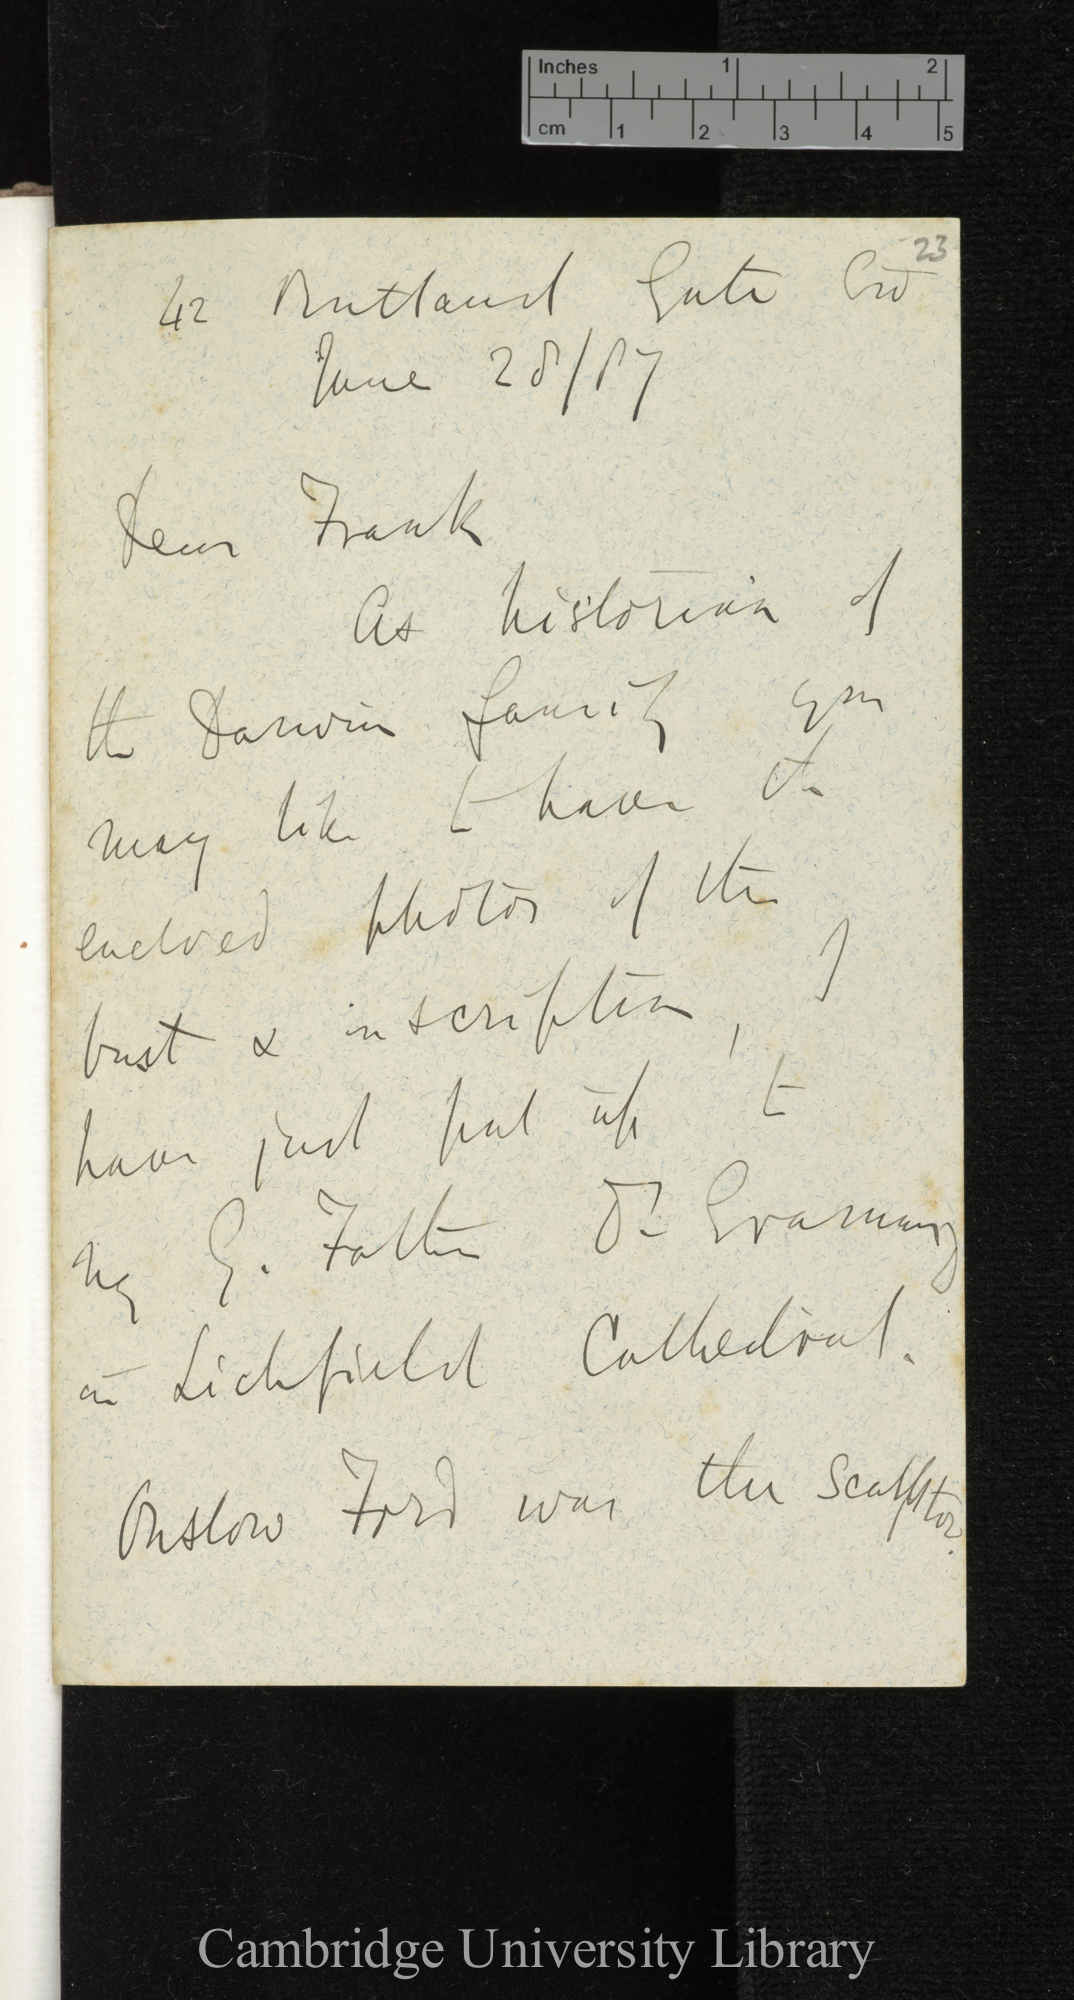 Inches 1 2
cm 1 2 3 4 5
23
42 Rutland Gate
June 28/87
Dear Frank
As historian of
the Darwin family you
may like to have the
enclosed photos of the
bust & inscription, I
have just put up to
my G. Father Dr.
in Lichfield Cathedral.
Onslow Ford was the sculptor.
Cambridge University Library